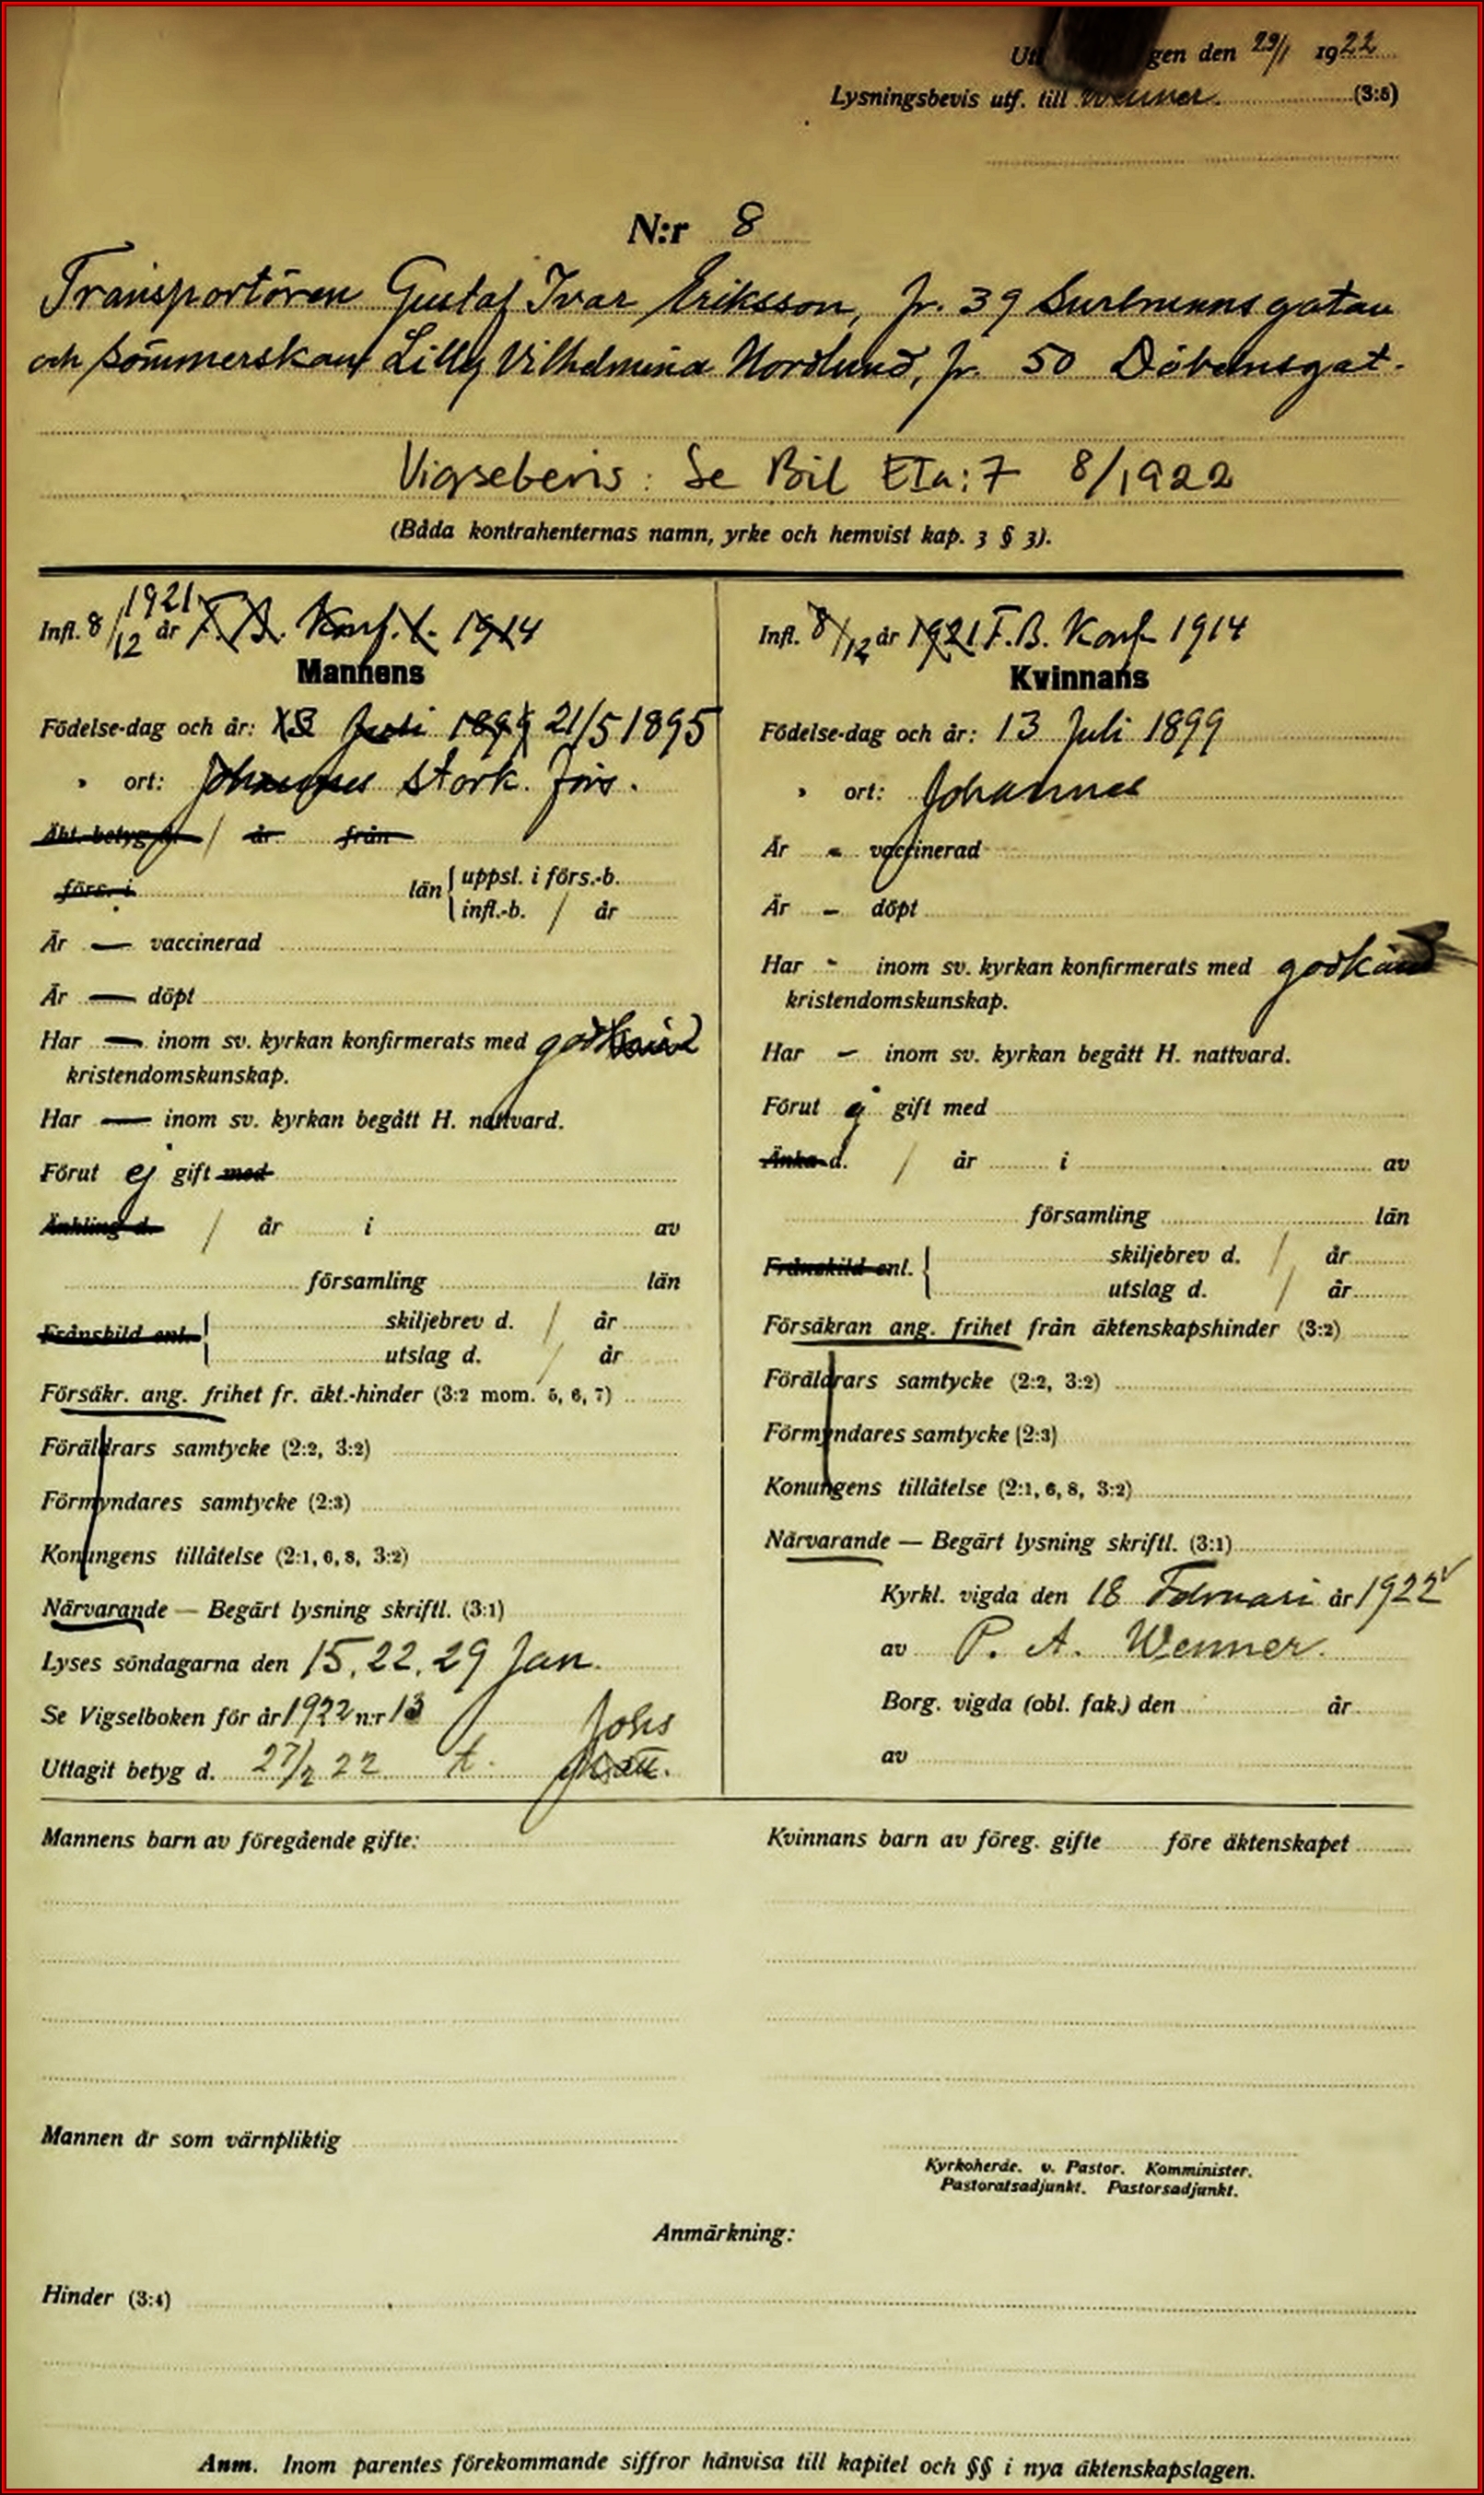 gen den 29/1 1922
Lysningsbevis utf. till Wenner. (3:5)
N:r 8
Transportören Gustaf Ivar Eriksson, fr. 39 Surbrunnsgatan
och sömmerskan Lilly Vilhelmina Nordlund, fr. 50 Döbelnsgat.
Vigselbevis: Se Bil EIa:7 8/1922
(Båda kontrahenternas namn, yrke och hemvist kap. 3 § 3).
1921
Infl. 8/12 år F. B. Konf. 1914
Mannens
Födelse-dag och år: 13 Juli 1899 21/5 1895
» ort: Johannes Stork. förs.
Äkt.-betyg d. / år från
förs. i län { uppsl. i förs.-b.
infl.-b. / år
Är — vaccinerad
Är — döpt
Har — inom sv. kyrkan konfirmerats med godkänd
kristendomskunskap.
Har — inom sv. kyrkan begått H. nattvard.
Förut ej gift med
Änkling d. / år i av
församling län
Frånskild enl. { skiljebrev d. / år
utslag d. / år
Försäkr. ang. frihet fr. äkt.-hinder (3:2 mom. 5, 6, 7)
Föräldrars samtycke (2:2, 3:2)
Förmyndares samtycke (2:3)
Konungens tillåtelse (2:1, 6, 8, 3:2)
Närvarande — Begärt lysning skriftl. (3:1)
Lyses söndagarna den 15, 22, 29 Jan.
Se Vigselboken för år 1922 n:r 13
Johs
Uttagit betyg d. 27/2 22 t.
Infl. 8/12 år 1921 F.B. Konf 1914
Kvinnans
Födelse-dag och år: 13 Juli 1899
» ort: Johannes
Är - vaccinerad
Är - döpt
Har - inom sv. kyrkan konfirmerats med godkänd
kristendomskunskap.
Har - inom sv. kyrkan begått H. nattvard.
Förut ej gift med
Änka d. / år i av
församling län
Frånskild enl. { skiljebrev d. / år
utslag d. / år
Försäkran ang. frihet från äktenskapshinder (3:2)
Föräldrars samtycke (2:2, 3:2)
Förmyndares samtycke (2:3)
Konungens tillåtelse (2:1, 6, 8, 3:2)
Närvarande — Begärt lysning skriftl. (3:1)
Kyrkl. vigda den 18 Februari år 1922
av P. A. Wenner.
Borg. vigda (obl. fak.) den år
av
Mannens barn av föregående gifte:
Kvinnans barn av föreg. gifte före äktenskapet
Mannen är som värnpliktig
Kyrkoherde. v. Pastor. Komminister.
Pastoratsadjunkt. Pastorsadjunkt.
Anmärkning:
Hinder (3:4)
Anm. Inom parentes förekommande siffror hänvisa till kapitel och §§ i nya äktenskapslagen.